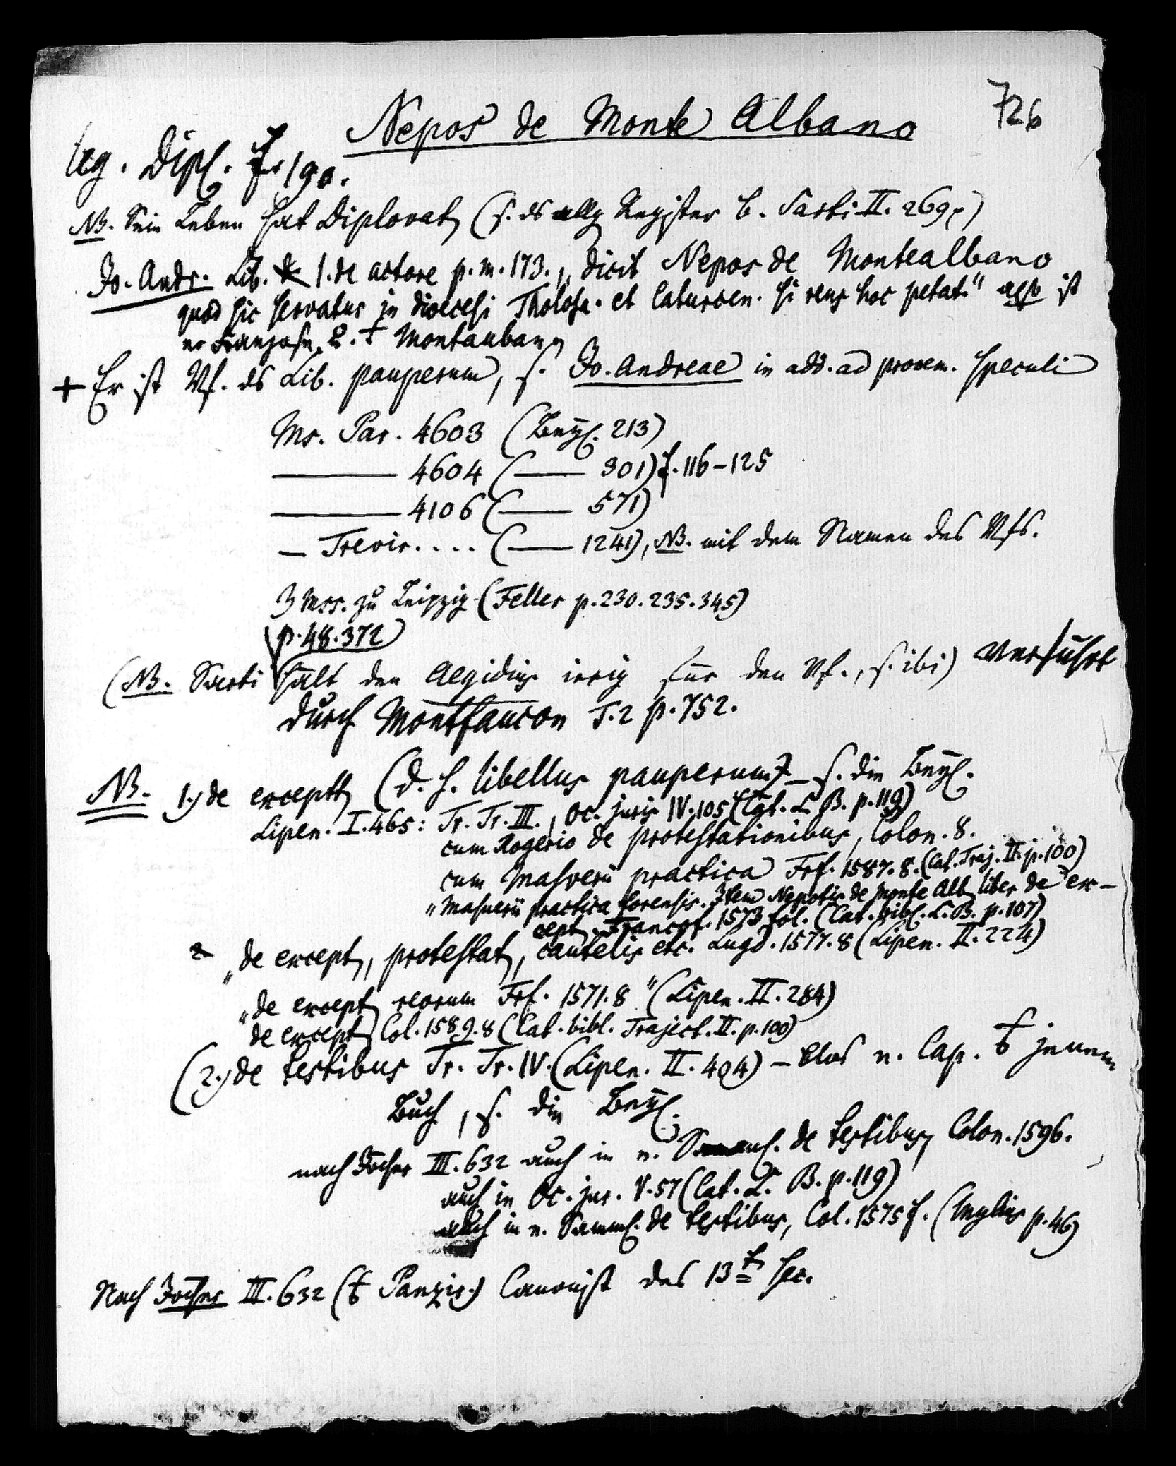 Nepos de Monte Albano
726
leg. Dipl. f. 190.
NB. Sein Leben hat Diplovat. (s. ds allg Register b. Sarti II. 269.)
Jo. Andr. Lib. 1. de actore p. m. 173. „dicit Nepos de Montealbano
quod sic servatur in diocesi Tholosa. et Caturcen. si reus hoc petat." also ist
er Franzose. Montauban
+ Er ist Vf. ds Lib. pauperum, s. Jo. Andreae in add. ad proem. Speculi
Ms. Par. 4603 (Beyl. 213)
——— 4604 (—— 301) f. 116-125
——— 4106 (—— 571)
— Trevir. . . . (—— 1241), NB. mit dem Namen des Vfs.
3 Mss. zu Leipzig (Feller p. 230. 235. 345)
p. 48. 372)
(NB. Sarti hält den Aegidius irrig für den Vf., s. ibi) verführt
durch Montfaucon T. 2 p. 752.
NB. 1.) de exceptt. (d. h. libellus pauperum) s. die Beyl.
Lipen. I. 465: Tr. Tr. III., Oc. juris IV. 105 (Cat. L. B. p. 119)
cum Rogerio de protestationibus, Colon. 8.
cum Masuerii practica Frf. 1587. 8. (Cat. Traj. II. p. 100)
„Masuerii practica forensis. Item Nepotis de Monte Alb. liber de ex-
cept. Francof. 1573 fol. (Cat. bibl. L. B. p. 107)
„de except., protestat., cautelis etc. Lugd. 1577. 8 (Lipen. II. 224)
„de except. reorum Frf. 1571. 8" (Lipen. II. 284)
de except. Col. 1589. 8 (Cat. bibl. Traject. II. p. 100)
(2.) de testibus Tr. Tr. IV. (Lipen. II. 494) – blos e. Cap. jenem
Buch, s. die Beyl.
nach Jöcher III. 632 auch in e. Samml. de testibus, Colon. 1596.
auch in Oc. jur. V. 57 (Cat. L. B. p. 119)
auch in e. Samml. de testibus, Col. 1575 f. (p. 46)
Nach Jöcher III. 632 (Panzir.) Canonist des 13t Sec.